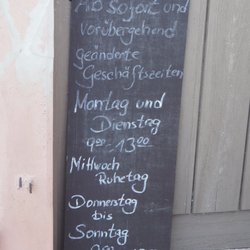 Ab Sofort und
vorübergehend
geänderte
Geschäftszeiten
Montag und
Dienstag
9⁰⁰-13⁰⁰
Mittwoch
Ruhetag
Donnerstag
bis
Sonntag